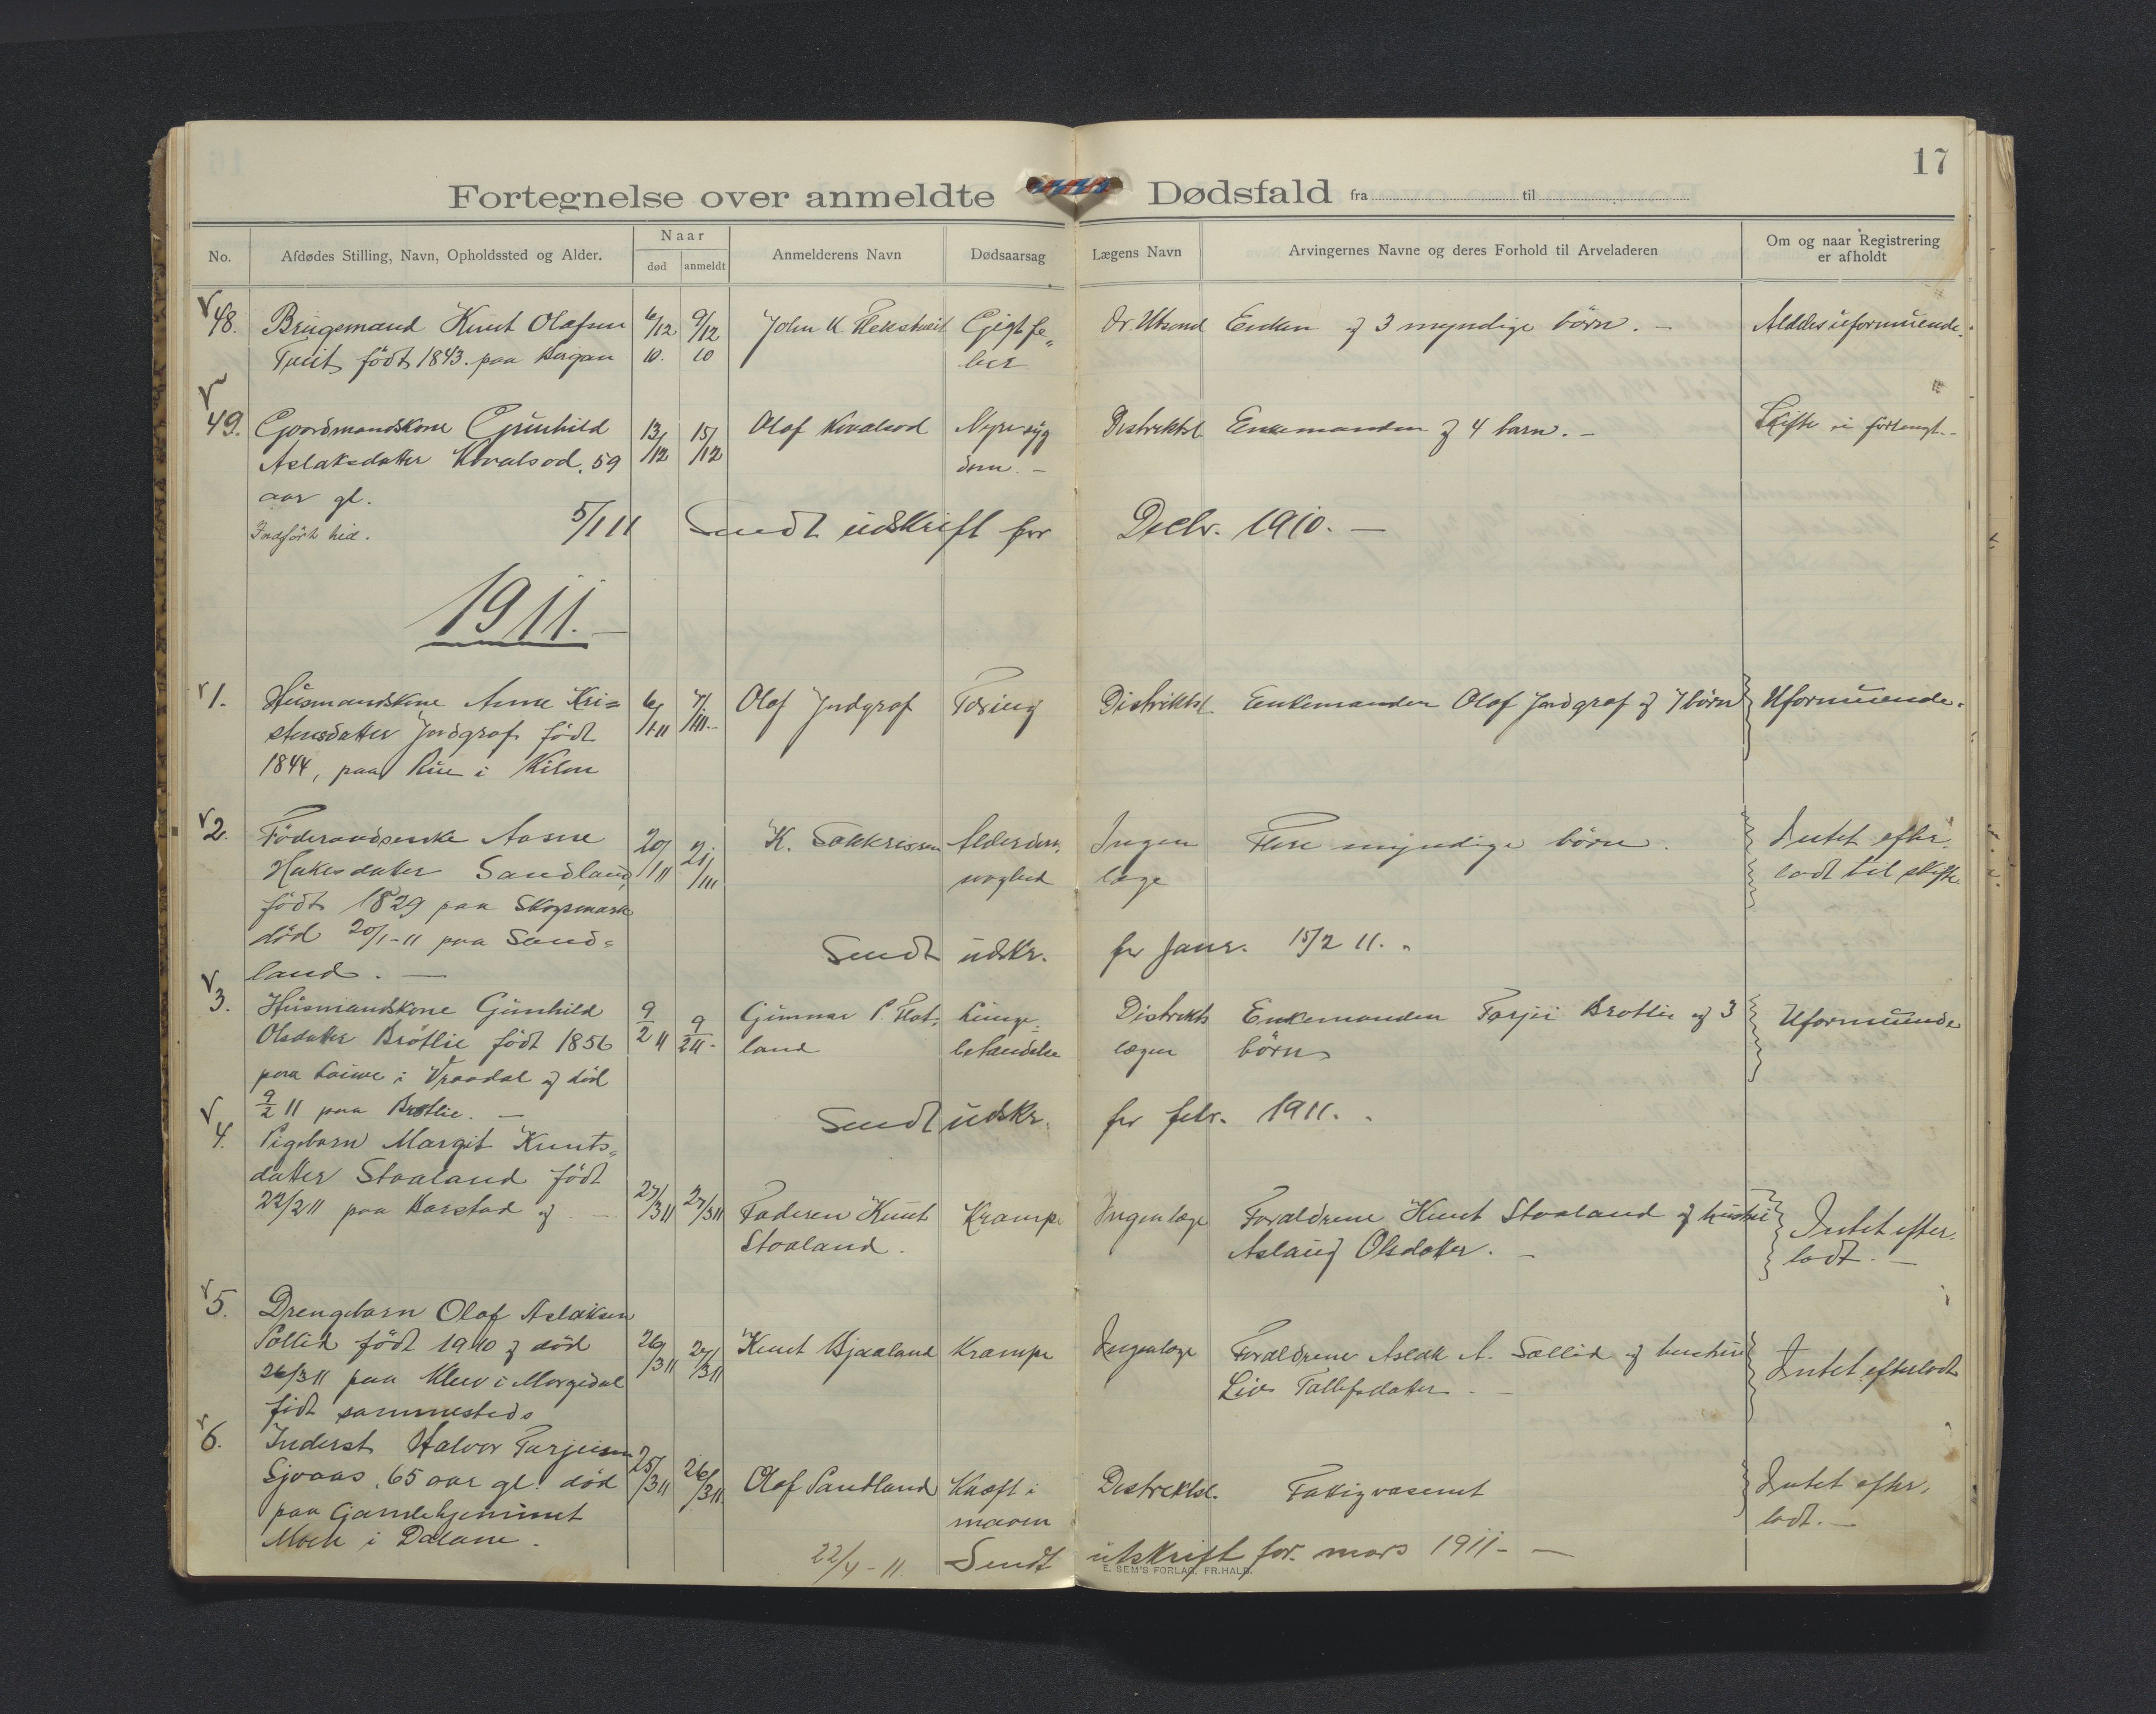 17
Fortegnelse over anmeldte Dødsfald fra til
No.
Afdødes Stilling, Navn, Opholdssted og Alder.
Naar
død
anmeldt
Anmelderens Navn
Dødsaarsag
Lægens Navn
Arvingernes Navne og deres Forhold til Arveladeren
Om og naar Registrering
er afholdt
48. Brugsmand Knut Olafsen 6/12 9/12 John K. Gigtfe„ Dr. Enken og 3 myndige børn. - Aldeles uformuende.
Tveit født 1843. paa 10. 10 ber
49. Gaardmandskone Gunhild 13/12 15/12 Olaf Kovalsod Nyresyg Distriktsl. Enkemanden og 4 barn. - Skifte ei forlangt. -
Aslaksdatter Kovalsod, 59 dom. -
aar gl.
Indført hid. 5/1 11 Sendt udskrift for Decbr. 1910. -
1911. -
1. Husmandskone Anne Kri= 6/1 11 7/1 11.- Olaf Jordgraf Tæring Distriktsl. Enkemanden Olaf Jordgraf og 7 børn Uformuende.
stensdatter Jordgraf født
1844, paa Rue i Kilen
2. Føderaadsenke Aasne 20/1 11 21/1 11 K. Alderdoms Ingen Flere myndige børn. Intet efter
Hakesdatter Sandland, svaghed læge ladt til skifte
født 1829 paa Skogsmark
død 20/1-11 paa Sand=
land. - Sendt udskr. for Janr. 15/2 11.
3. Husmandskone Gunhild 9/2 11 9/2 11- Gunnar P. Flot, Lunge- Distrikts Enkemanden Tarjei Brotlie og 3 Uformuende
Olsdatter Brøtlie født 1856 land betændelse lægen børn
paa i Vraadal og død
9/2 11 paa Brøtlie. - Sendt udskr. for febr. 1911.
4. Pigebarn Margit Knuts„
datter Staaland født
22/2 11 paa Harstad og - 27/3 11 27/3 11 Faderen Knut Krampe Ingen læge Foraldrene Knut Staaland og hustru Intet efter
Staaland. Aslaug Olsdatter. - ladt. -
5. Drengebarn Olaf Aslaksen
født 1910 og død 26/3 11 27/3 11 Knut Bjaaland Krampe Ingen læge Foraldrene Aslak A. og hustru Intet efterladt
26/3 11 paa Kleiv i Morgedal Liv Tallefsdatter. -
født sammesteds
6. Inderst Halvor Tarjeisen 25/3 11 26/3 11 Olaf Sandland Kræft i Distriktsl. Fattigvæsenet Intet efter,
65 aar gl. død maven ladt. -
paa Gamlehjemmet
Moen i Dalane. 22/4-11 Sendt utskrift for mars 1911- -
E. SEM'S FORLAG, FR.HALD.